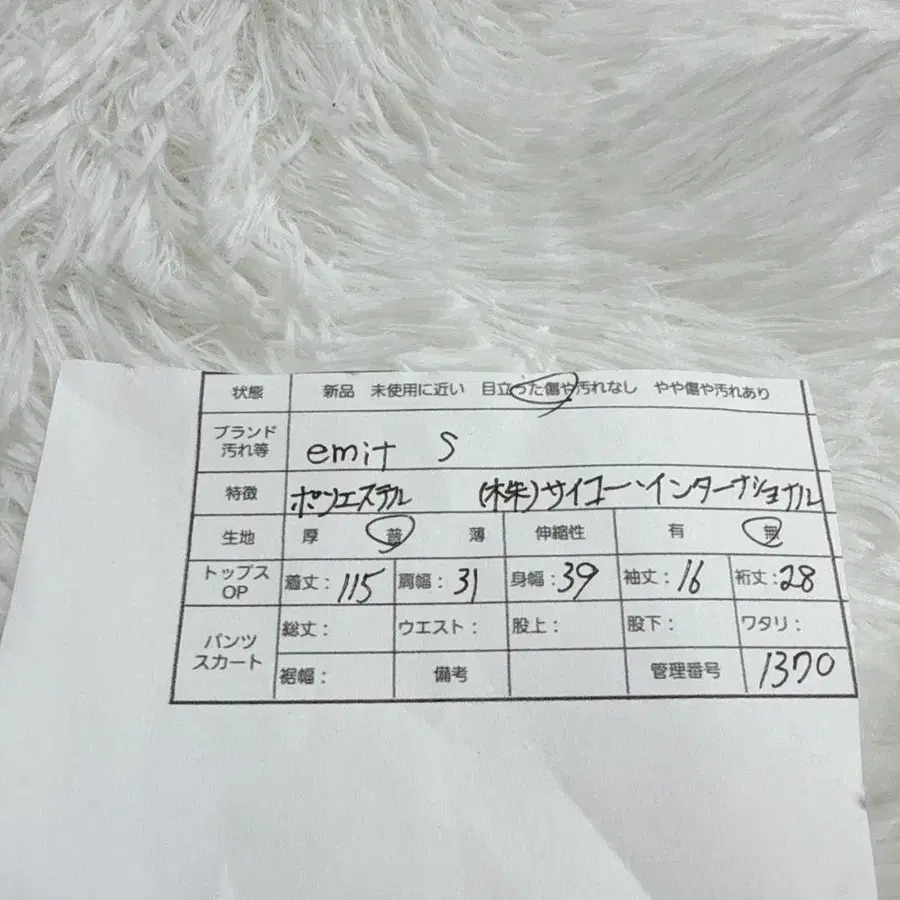 状態 新品 未使用に近い 目立った傷や汚れなし やや傷や汚れあり
ブランド
汚れ等 emit S
特徴 ポリエステル (株)サイコー・インターナショナル
生地 厚 普 薄 伸縮性 有 無
トップス
OP 着丈：115 肩幅：31 身幅：39 袖丈：16 裄丈：28
パンツ
スカート 総丈： ウエスト： 股上： 股下： ワタリ：
裾幅： 備考 管理番号 1370